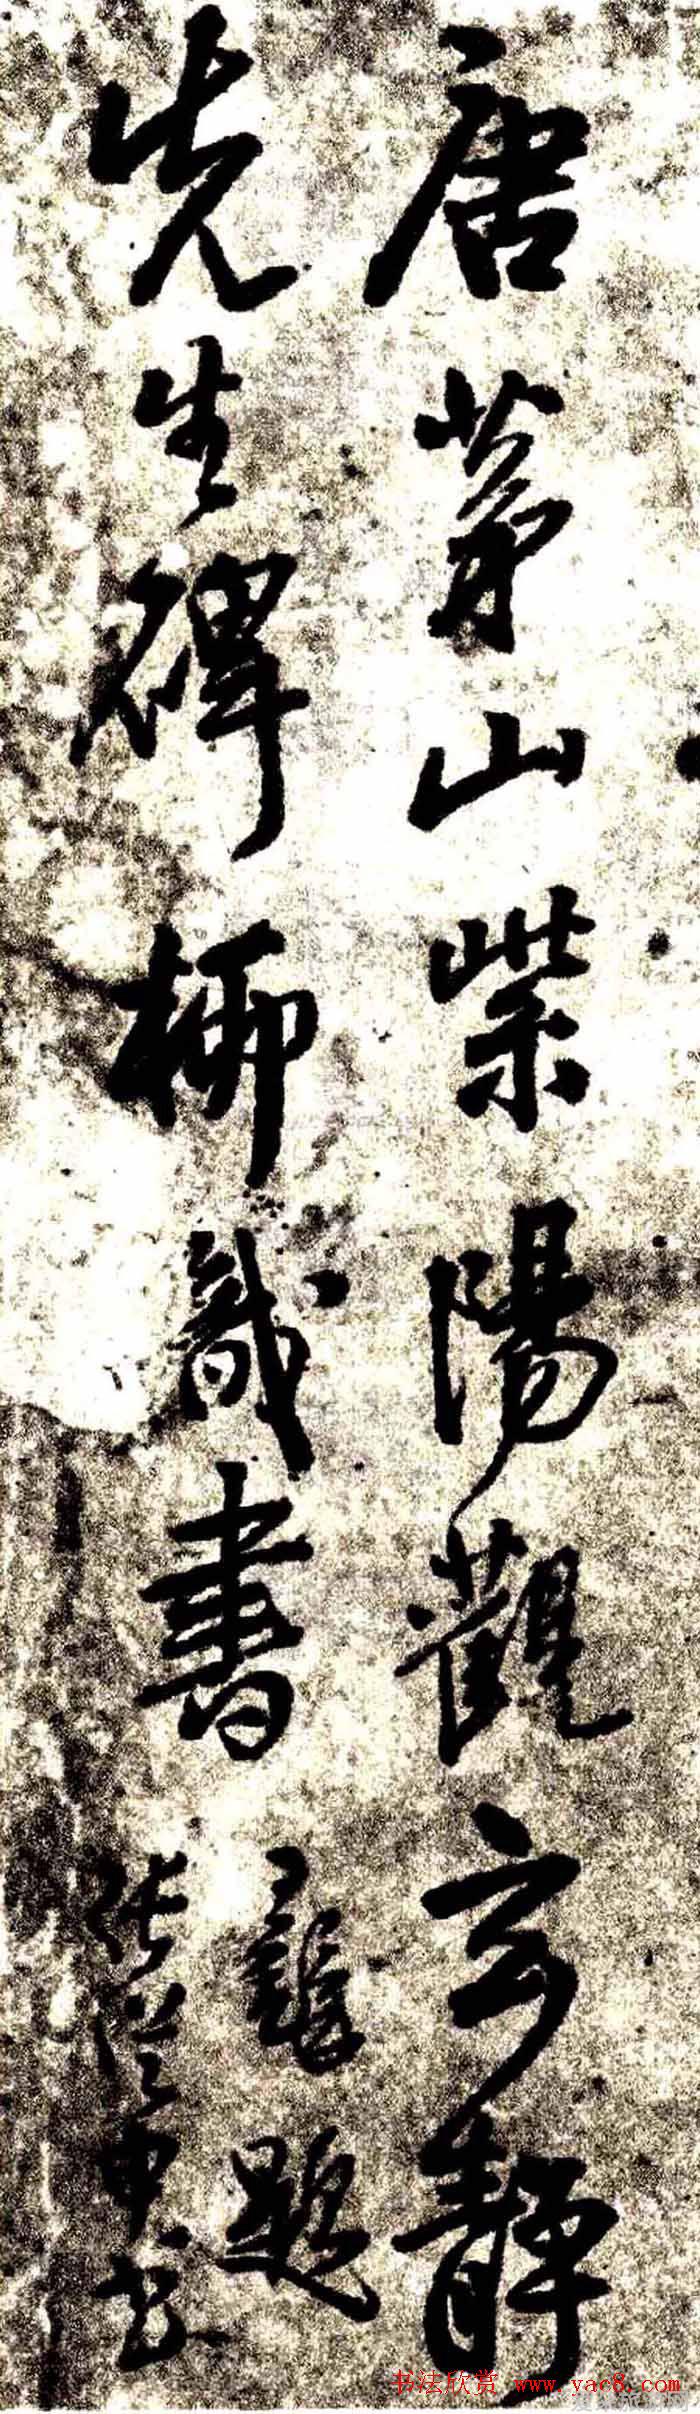 唐茅山紫陽觀玄靜
先生碑柳識書
題
張從申書
书法欣赏 www.yac8.com